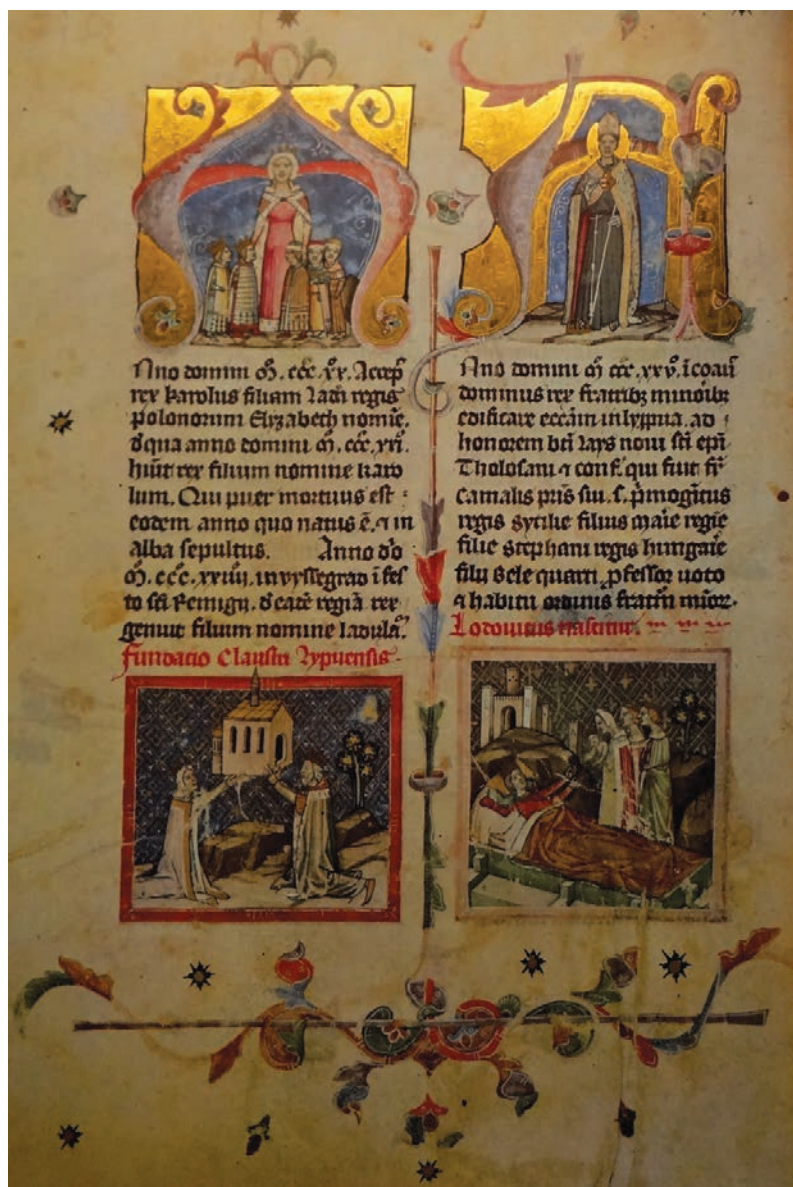 Nno domini M. ccc. xx. Accep̄
rex karolus filiam ladi regis
polonorum Elyzabeth nomīe.
d̄qua anno domini M. ccc. xxi.
huīt rex filium nomine karo
lum. Qui puer mortuus est
eodem anno quo natus ē. ⁊ in
alba sepultus. Anno dōo
M. ccc. xxiiij. in vyssegrad ī fes
to sc̄i Remigij. d̄catē regīa rex
genuit filium nomine ladulā.
fundatio Claustri lyppuensis.
Nno domini M ccc. xxv. īcoaūı
dominus rex fratribꝫ minoibꝫ
edificare ecc̄am in lyppua. ad
honorem bt̄i lays noui sc̄i ep̄i
Tholosani ⁊ conf. qui fuit fr̄
carnalis pr̄is sui. s. p̄mogītus
regis sycilie filius maīe regīe
filie stephani regis hungaīe
filij Bele quarti. ꝓfessor uoto
⁊ habitu ordinis fratrū mīor.
Lodouicus nascitur.